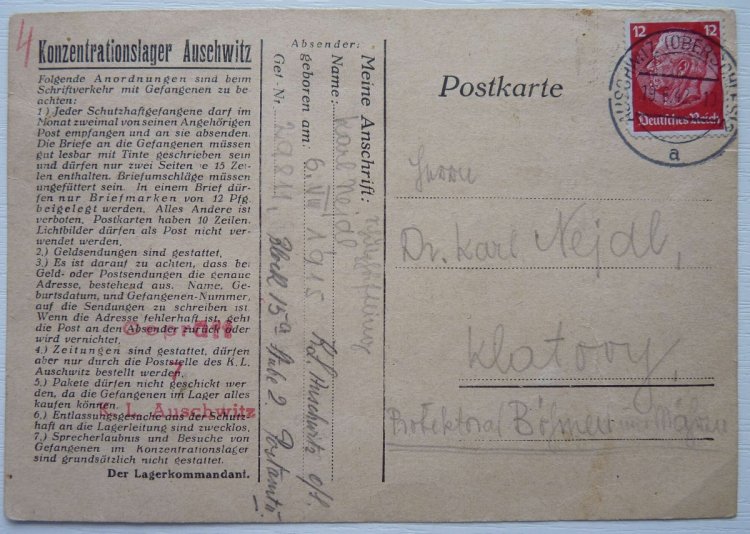 4
Konzentrationslager Auschwitz
Folgende Anordnungen sind beim
Schriftverkehr mit Gefangenen zu be-
achten:
1.) Jeder Schutzhaftgefangene darf im
Monat zweimal von seinen Angehörigen
Post empfangen und an sie absenden.
Die Briefe an die Gefangenen müssen
gut lesbar mit Tinte geschrieben sein
und dürfen nur zwei Seiten e 15 Zei-
len enthalten. Briefumschläge müssen
ungefüttert sein. In einem Brief dür-
fen nur Briefmarken von 12 Pfg.
beigelegt werden. Alles Andere ist
verboten. Postkarten haben 10 Zeilen.
Lichtbilder dürfen als Post nicht ver-
wendet werden.
2.) Geldsendungen sind gestattet.
3.) Es ist darauf zu achten, dass bei
Geld- oder Postsendungen die genaue
Adresse, bestehend aus. Name, Ge-
burtsdatum, und Gefangenen-Nummer,
auf die Sendungen zu schreiben ist.
Wenn die Adresse fehlerhaft ist, geht
die Post an den Absender zurück oder
wird vernichtet.
4.) Zeitungen sind gestattet, dürfen
aber nur durch die Poststelle des K. L.
Auschwitz bestellt werden.
5.) Pakete dürfen nicht geschickt wer-
den, da die Gefangenen im Lager alles
kaufen können.
6.) Entlassungsgesuche aus der Schutz-
haft an die Lagerleitung sind zwecklos.
7.) Sprecherlaubnis und Besuche von
Gefangenen im Konzentrationslager
sind grundsätzlich nicht gestattet.
Der Lagerkommandant.
Geprüft
7
K. L. Auschwitz
Absender:
Meine Anschrift:
Name: Karl Nejdl
geboren am: 6. VIII 1915 Kl Auschwitz o/s.
Gef.-Nr. Block 15a Stube 2 Postamt II
Postkarte
12 12
Deutsches Reich
AUSCHWITZ (OBERSCHLES)
a
Herrn
Dr. Karl Nejdl,
Klatovy,
Protektorat Böhmen und Mähren